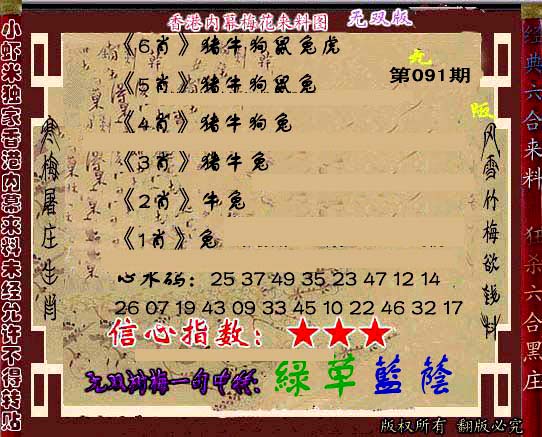 香港内幕梅花来料图 无双版
小虾米独家香港内幕来料未经允许不得转贴
经典六合来料 狂杀六合黑庄
第091期
《6肖》猪牛狗鼠兔虎
《5肖》猪牛狗鼠兔
《4肖》猪牛狗兔
《3肖》猪牛兔
《2肖》牛兔
《1肖》兔
寒梅屠庄生肖
风雪竹梅欲钱料
心水码：25 37 49 35 23 47 12 14
26 07 19 43 09 33 45 10 22 46 32 17
信心指数：★★★
綠草藍蔭
版权所有 翻版必究